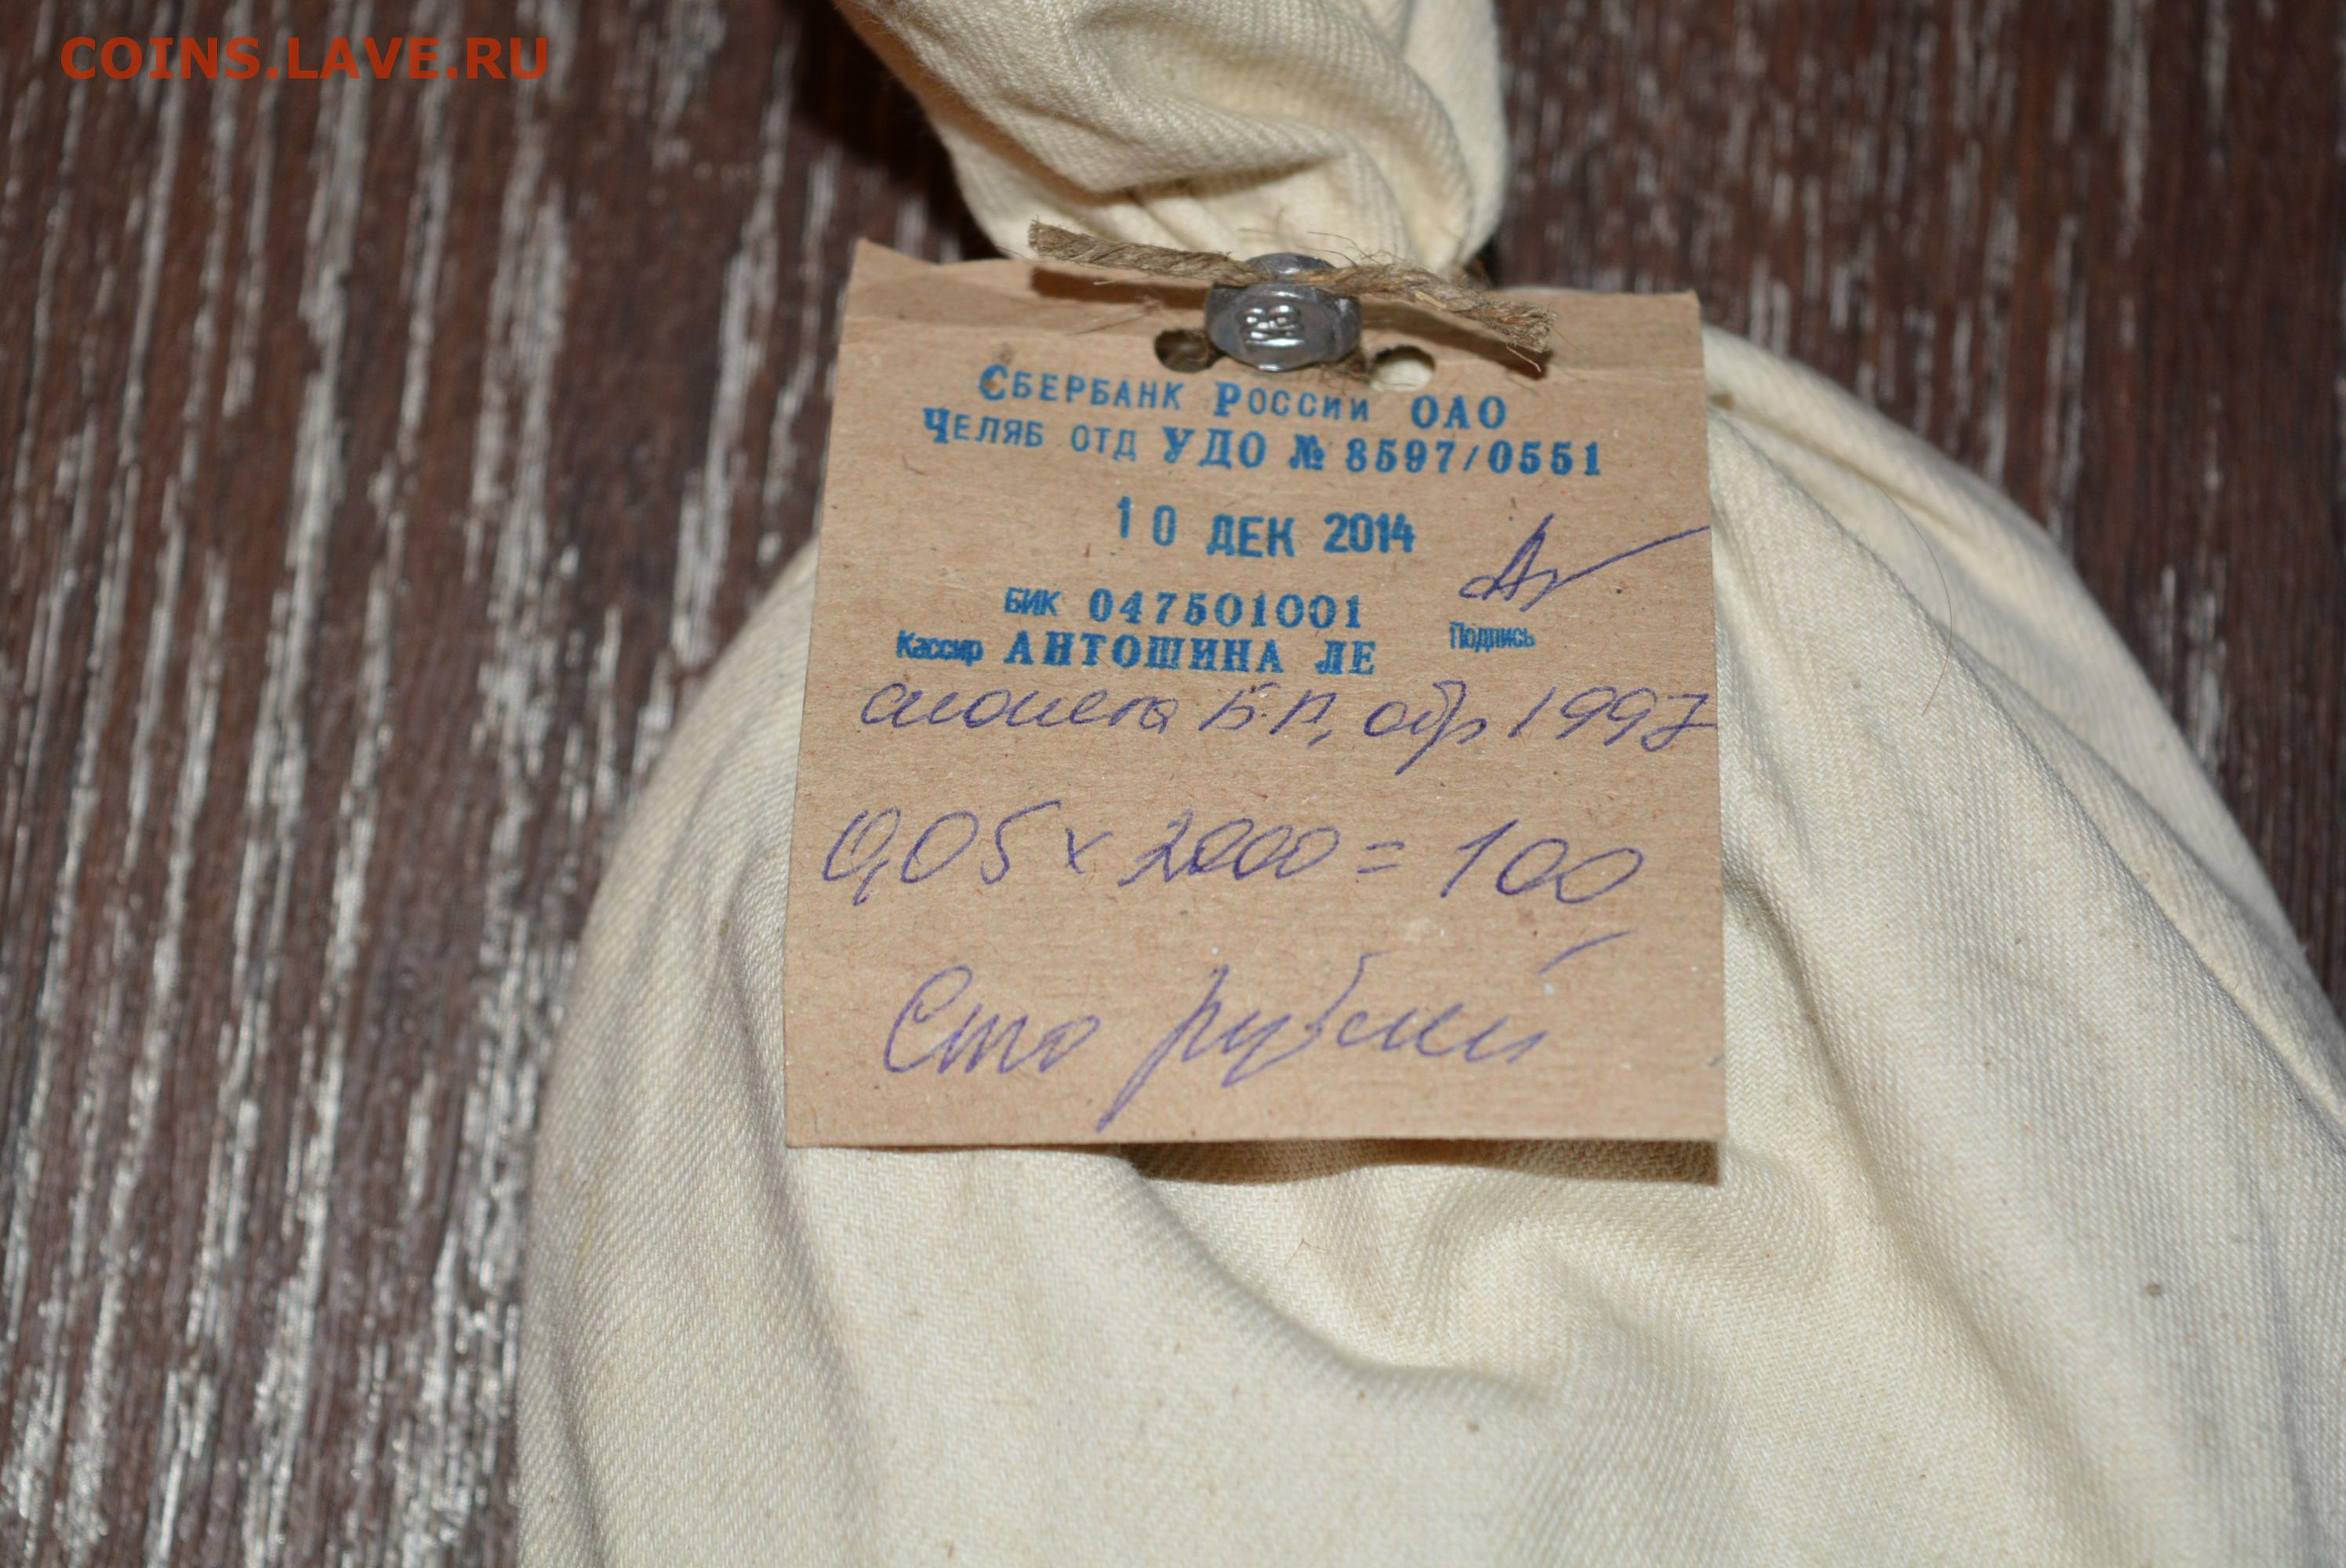 COINS.LAVE.RU
СБЕРБАНК РОССИИ ОАО
ЧЕЛЯБ ОТД УДО № 8597/0551
10 ДЕК 2014
БИК 047501001
Подпись
Кассир АНТОШИНА ЛЕ
монета Б.Р, обр 1997
0,05 x 2000 = 100
Сто рублей